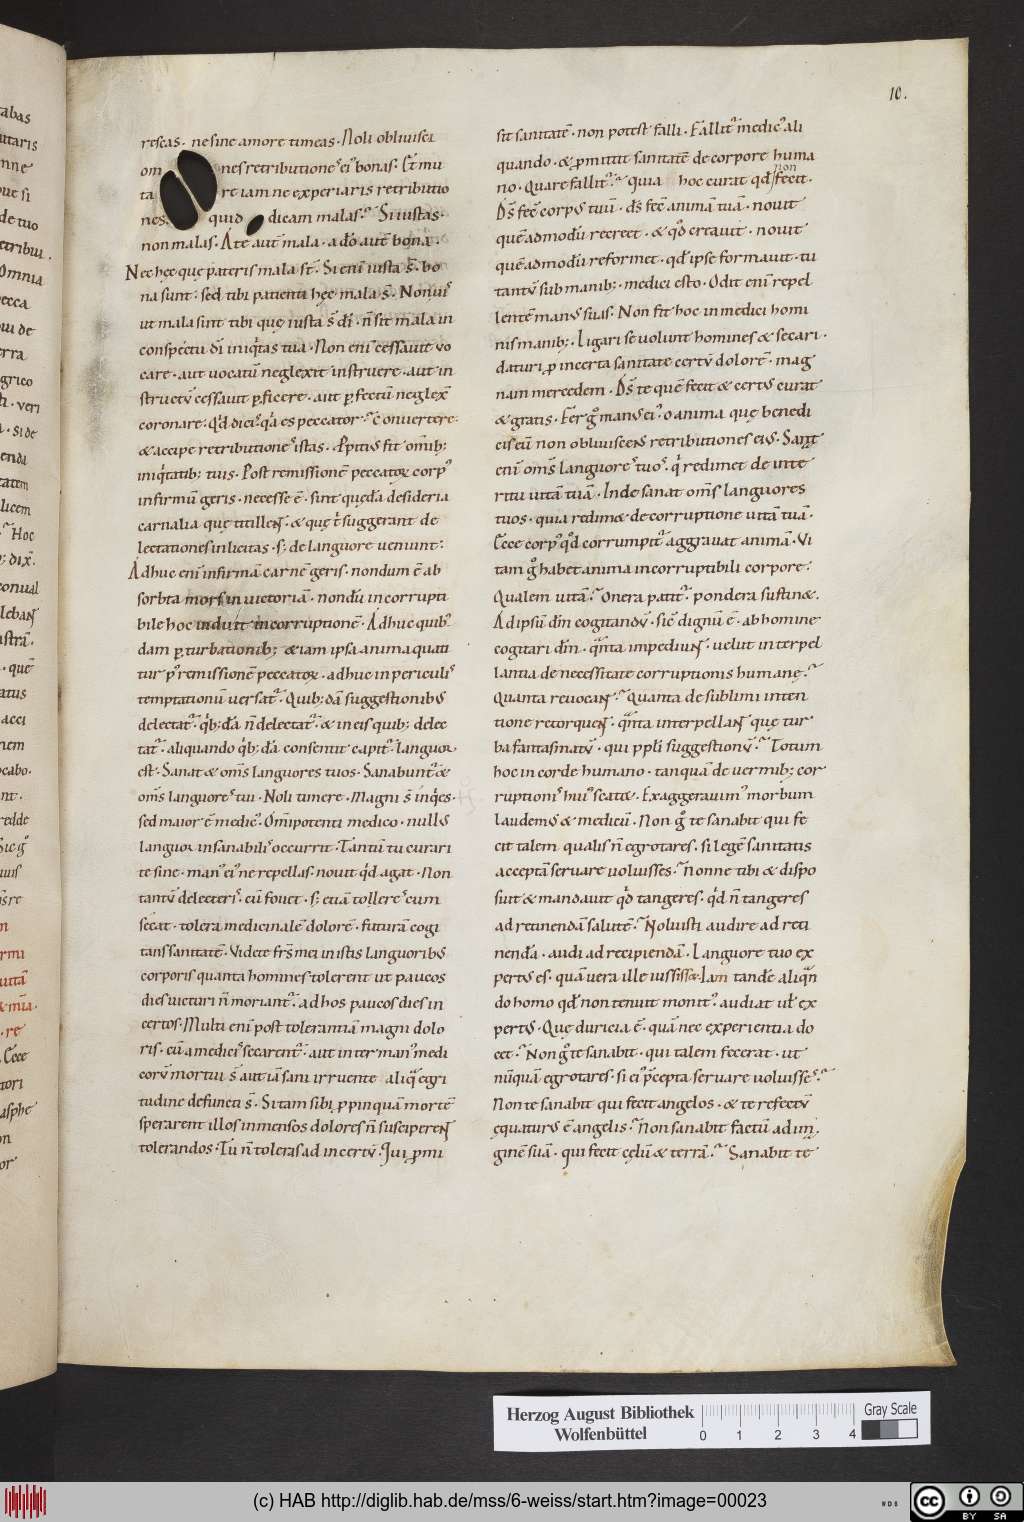 10.
rescas. ne sine amore timeas. Noli obliuisci
om nes retributiones ei' bonas. Et mu
ta re iam ne experiaris retributio
nes quid dicam malas? Si iustas.
non malas. A te aut mala. a do aute bona.
Nec hęc quę pateris mala st. Si eni iusta s. bo
na sunt: sed tibi patienti hęc mala s. Non uis
ut mala sint tibi quę iusta s di. n sit mala in
conspectu di iniqtas tua. Non eni cessauit uo
care. aut uocatu neglexit instruere. aut in
structu cessauit pficere. aut pfectu neglex
coronare. Qd dicis qa es peccator? Conuertere.
& accipe retributiones istas. Ppitius fit omib;
iniqtatib; tuis. Post remissione peccator corp'
infirmu geris. necesse e. sint queda desideria
carnalia quę titillent. & quę t suggerant de
lectationes inlicitas. s; de languore ueniunt.
Adhuc eni infirma carne geris. nondum e ab
sorbta mors in uictoria. nondu incorrupti
bile hoc induit incorruptione. Adhuc quib'
dam pturbationib; & iam ipsa anima quati
tur p' remissione peccator. adhuc in periculis
temptationu uersat. Quib; da suggestionib'
delectat. qb; da n delectat. & in eis quib; delec
tat. aliquando qb; da consentit capit. Languor
est. Sanat & oms languores tuos. Sanabunt &
oms languores tui. Noli timere. Magni s inqes.
sed maior e medic'. Omipotenti medico. null'
languor insanabilis occurrit. Tantu tu curari
te sine. man' ei' ne repellas. nouit qd agat. Non
tantu delecteris. cu fouet. s; etia tolleres cum
secat. tolera medicinale dolore. futura cogi
tans sanitate. Videte frs mei in istis languorib'
corporis quanta homines tolerent ut paucos
dies uicturi n moriant. ad hos paucos dies in
certos. Multi eni post tolerantia magni dolo
ris. cu a medicis secarent. aut inter man' medi
coru mortui s aut ia sani irruente aliq egri
tudine defuncti s. Si tam sibi ppinqua morte
sperarent illos inmensos dolores n susciperent
tolerandos. Tu n toleras ad incertu. Qui pmi
sit sanitate. non potest falli. Fallit medic' ali
quando. & pmittit sanitate de corpore huma
no. Quare fallit? quia hoc curat qd non fecit.
Ds fec corp' tuu. ds fec anima tua. nouit
queadmodu recreet. & qd creauit. nouit
queadmodu reformet. qd ipse formauit. tu
tantu sub manib; medici esto. Odit eni repel
lente man' suas. Non fit hoc in medici homi
nis manib;. Ligari se uolunt homines & secari.
daturi p incerta sanitate certu dolore. mag
nam mercedem. Ds te que fecit & cert' curat
& gratis. Fer g man' ei' o anima quę benedi
cis eu non obliuiscens retributiones ei'. Sanat
eni oms languores tuos. q redimet de inte
ritu uita tua. Inde sanat oms languores
tuos. quia redim& de corruptione uita tua.
Ecce corp' qd corrumpit aggrauat anima. Vi
tam g habet anima in corruptibili corpore.
Qualem uita? Onera patit. pondera sustin&.
Ad ipsu dm cogitandu. sic dignu e. ab homine
cogitari dm. qnta impediunt. uelut interpel
lantia de necessitate corruptionis humanę?
Quanta reuocant? Quanta de sublimi inten
tione retorquent. qnta interpellant quę tur
ba fantasmatu. qui ppli suggestionu? Totum
hoc in corde humano. tanqua de uermib; cor
ruptionis hui' scatet. Exaggerauim' morbum
laudem' & medicu. Non g te sanabit qui fe
cit talem qualis n egrotares. si lege sanitatis
accepta seruare uoluisses? Nonne tibi & dispo
suit & mandauit qd tangeres. qd n tangeres
ad retinenda salute? Noluisti audire ad reti
nenda. audi ad recipienda. Languore tuo ex
pert' es. qua uera ille iussisset. Iam tande aliqn
do homo qd non tenuit monit'. audiat ut ex
pert'. Quę duricia e. qua nec experientia do
cet? Non g te sanabit. qui talem fecerat. ut
nuqua egrotares. si ei' pcepta seruare uoluisses?
Non te sanabit qui fecit angelos. & te refectu
ęquatur' e angelis? Non sanabit factu ad im
agine sua. qui fecit cęlu & terra? Sanabit te
Herzog August Bibliothek
Wolfenbüttel
0 1 2 3 4
Gray Scale
(c) HAB http://diglib.hab.de/mss/6-weiss/start.htm?image=00023
WDB
CC BY SA